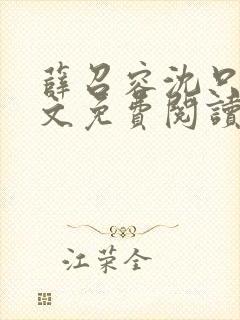 薛召容沈口
文免費閱讀
江荣全